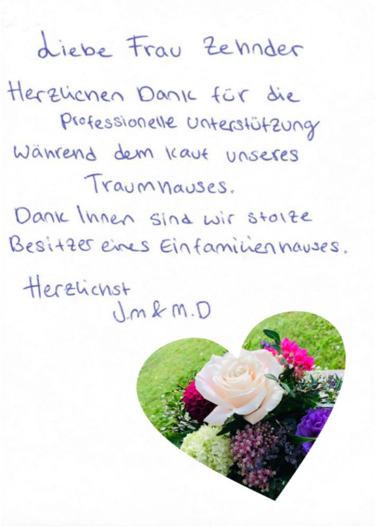 Liebe Frau Zehnder
Herzlichen Dank für die
Professionelle Unterstützung
während dem Kauf unseres
Traumhauses.
Dank Ihnen sind wir stolze
Besitzer eines Einfamilienhauses.
Herzlichst
J.M & M.D